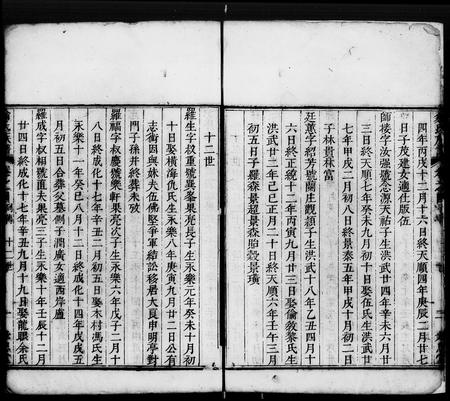 四年丙戌十二月十六日終天順四年庚辰二月廿七
日子芳建女適仕版伍
師棲字汝强號念源天祐子生洪武廿四年辛未六月廿
三日終天順七年癸未九月初十日娶伍氏生洪武廿
七年甲戌二月初八日終景泰五年甲戌十月初二日
子林貴林富
廷蕙字紹芳號蘭庄觀趙子生洪武十八年乙丑四月十
六日終正統十二年丙寅九月廿三日娶倫敎黎氏生
洪武廿二年己巳正月二十日終天順六年壬午三月
初五日子羅森景超景森胎穀景璜
十二世
羅生字叔重號異峯果亮子生永樂元年癸未十月初
十日娶橫海仇氏生永樂八年庚寅九月廿二日公有
志衛因與妹夫伍佛堅爭軍結訟務大良申明亭對
門子孫幷終葬未攷
羅福字叔慶號樂軒果亮次子生永樂六年戊子二月十
八日終成化十七年辛丑二月初五日娶木村馮氏生
永樂十一年癸巳八月十二日終成化十四年戊戌五
月初五日合葬父墓側子潤廣女適西岸盧
羅成字叔相號直夫果亮三子生永樂十年壬辰十二月
廿四日終成化十七年辛丑九月十九日娶龍眼余氏